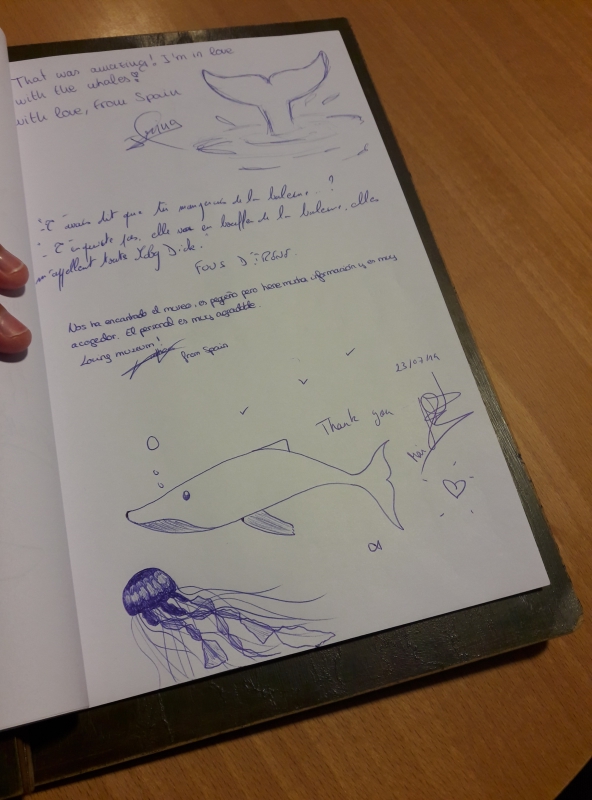 That was amazing! I'm in love
with the whales!
with love, from Spain
dit que tu mangerais de la baleine..?
pas, elle va en bouffer de la baleine, elle
m'appellent toute Moby Dick.
Nos ha encantado el museo, es pequeño pero tiene mucha información y es muy
acogedor. El personal es muy agradable.
Loving museum!
from Spain
23/07/19
Thank you